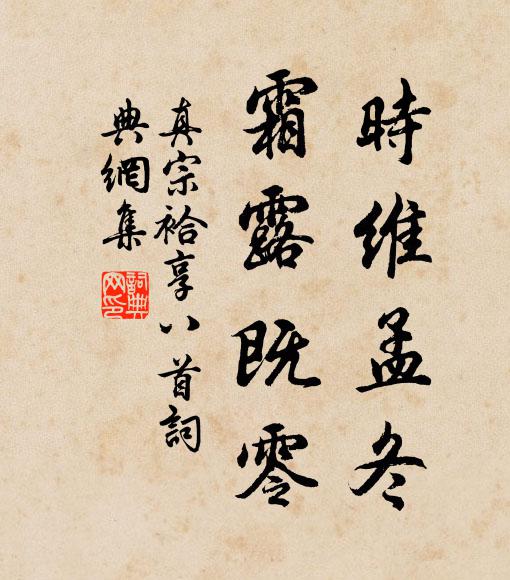 時維孟冬
霜露既零
真宗祫享八首詞
典網集
詞典網印